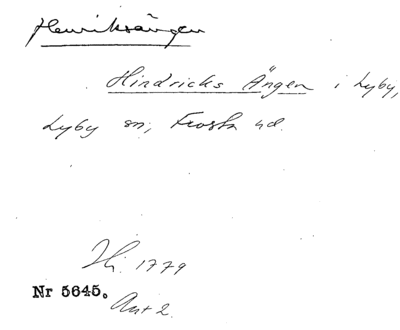 Henriksängen
Hindricks Ängen i Lyby,
Lyby sn, Frosta hd.
Hi. 1779
Nr 5645.
Akt 2.